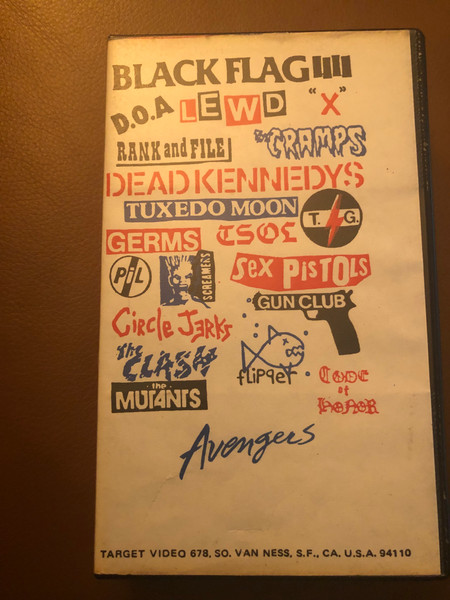 BLACK FLAG
D.O.A LEWD "X"
RANK and FILE the CRAMPS
DEAD KENNEDYS
TUXEDO MOON T. G.
GERMS TSOL
PiL SCREAMERS SEX PISTOLS
GUN CLUB
CiRcle JERKS
the CLASH flipper CODE of HONOR
the MUTANTS
Avengers
TARGET VIDEO 678, SO. VAN NESS, S.F., CA. U.S.A. 94110